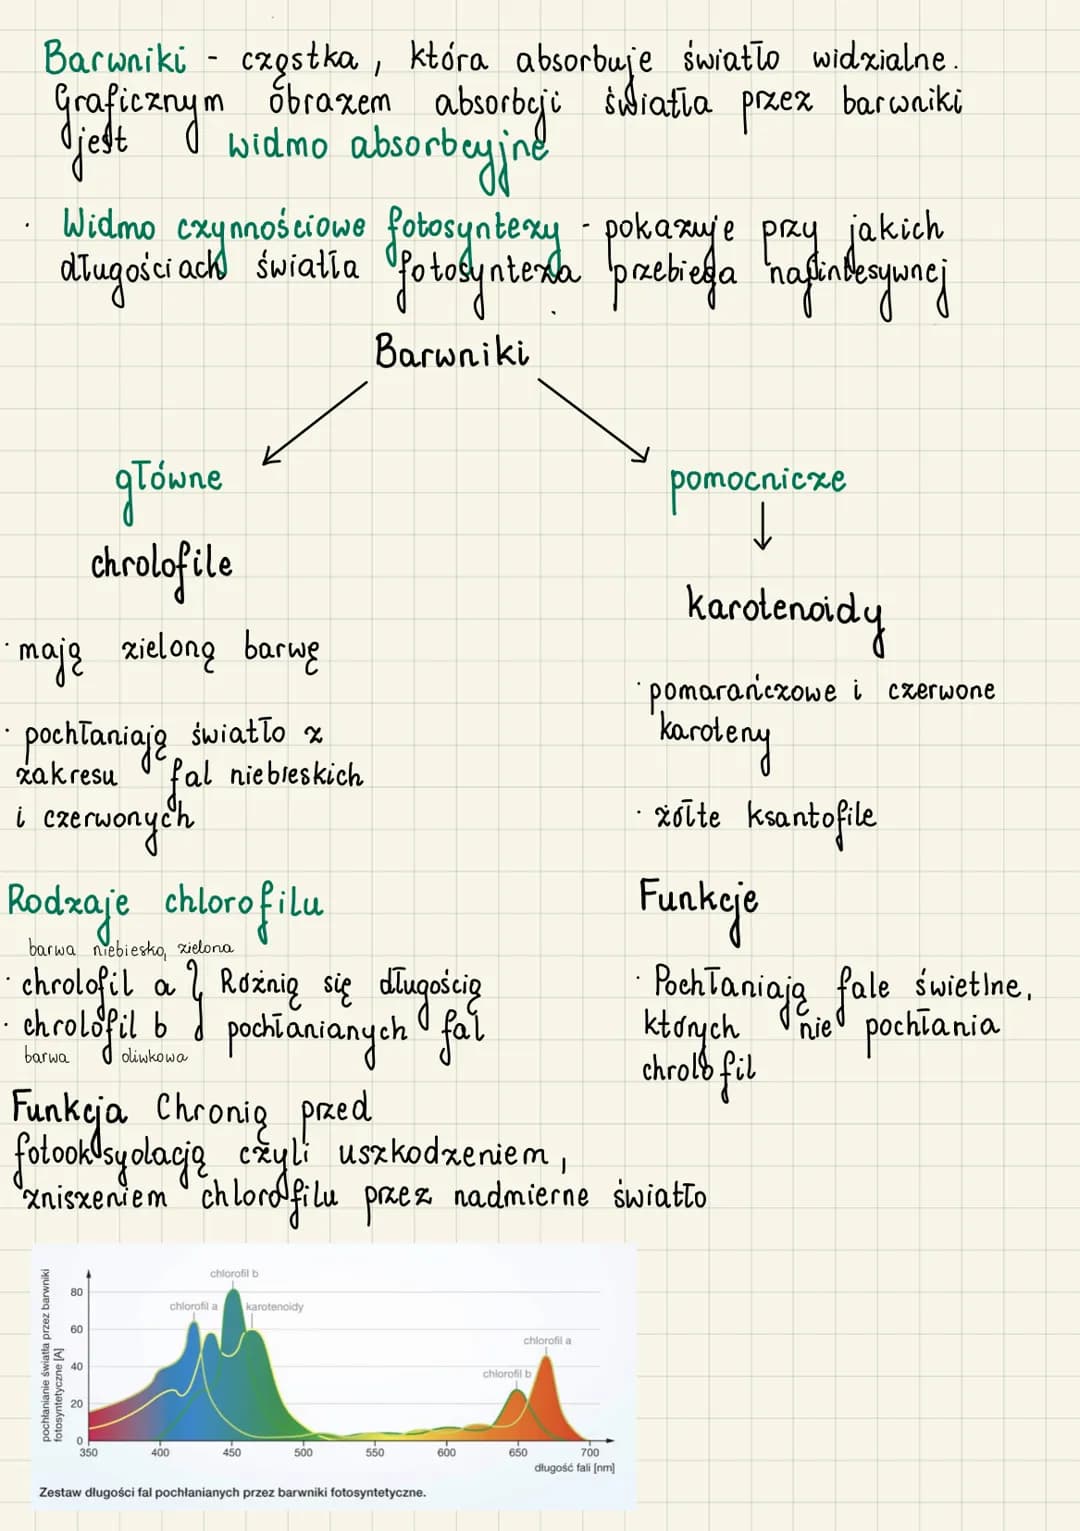 Barwniki - cząstka, która absorbuje światło widzialne.
Graficznym obrazem absorbcji światła przez barwniki
jest widmo absorbcyjne
· Widmo czynnościowe fotosyntezy - pokazuje przy jakich
długościach światła fotosynteza przebiega najintesywnej
Barwniki
główne
pomocnicze
chrolofile
karotenoidy
· mają zieloną barwę
· pomarańczowe i czerwone
karoteny
· pochłaniają światło z
zakresu fal niebieskich
i czerwonych
· żółte ksantofile
Rodzaje chlorofilu
Funkcje
barwa niebiesko, zielona
· chrolofil a } Różnią się długością
· chrolofil b pochłanianych fal
barwa oliwkowa
· Pochłaniają fale świetlne,
których nie pochłania
chrolofil
Funkcja Chronią przed
fotooksyolacją czyli uszkodzeniem,
zniszeniem chlorofilu przez nadmierne światło
pochłanianie światła przez barwniki
fotosyntetyczne [A]
80
60
40
20
0
chlorofil b
chlorofil a
karotenoidy
chlorofil a
chlorofil b
350 400 450 500 550 600 650 700
długość fali [nm]
Zestaw długości fal pochłanianych przez barwniki fotosyntetyczne.